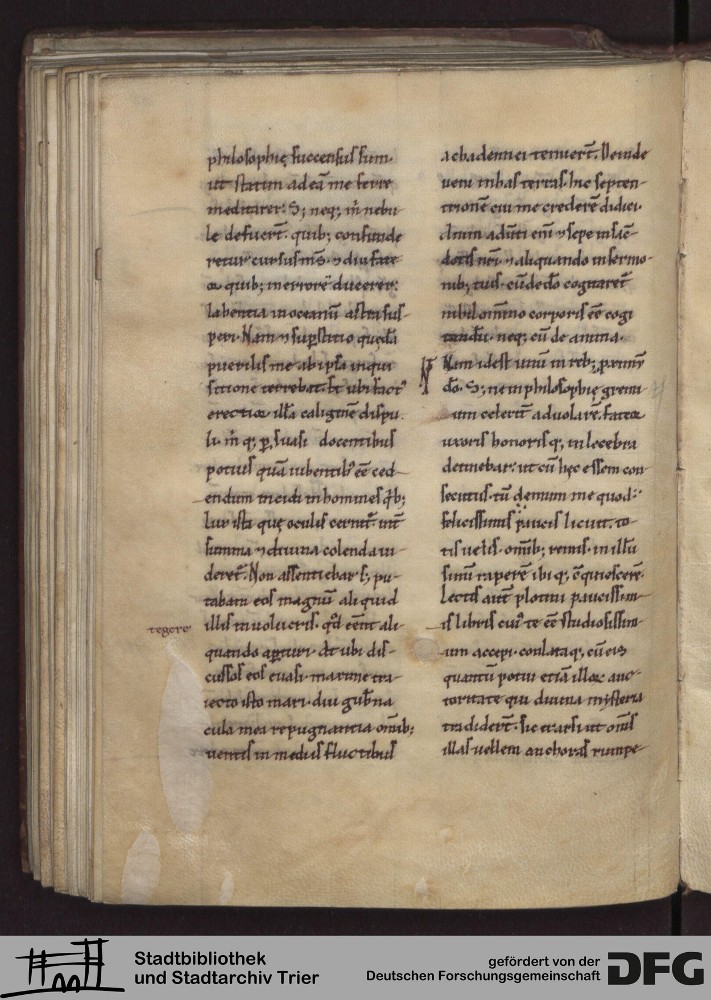 philosophię succensus sum.
ut statim ad eā me ferre
meditarer. S; neq; m̄ nebu
le defuer̄t. quib; confunde
retur cursus m̄s. ⁊ diu fate
or quib; in errorē ducerer.
labentia in oceanū astra sus-
pexi. Nam ⁊ sup̄stitio quędā
puerilis me ab ipsa inqui
sitione terrebat. Et ubi fact'
erectior illā caliginē dispu
li. m̄ q; ꝑsuasi docentibus
potius quā iubentib' eē ced-
endum incidi in homines qͥb;
lux ista quę oculis cernit̄. int̄
summa ⁊ diuina colenda ui-
deret̄. Non assentiebar s; pu-
tabam eos magnū aliquid
tegere
illis inuolucris. qd̄ eēnt ali-
quando aꝑturi. At ubi dis-
cussos eos euasi. maxime tra-
iecto isto mari. diu gub̄na
cula mea repugnantia om̄ib;
uentis in mediis fluctibus
achademici tenuer̄t. Deinde
ueni in has terras. hic septen-
trionē cui me crederē didici.
Animaduerti eni ⁊ sepe in sacē-
dotis nr̄i. ⁊ aliquando in sermo-
nib; tuis. cū de dō cogitaret̄
nihil om̄ino corporis eē cogi
tandū. neq; cū de anima.
Nam id est unū in reb; ꝓximū
dō. S; ne in philosophię gremi-
um celerit̄ aduolarē. fateor
uxoris honorisq; inlecebra
detinebar. ut cū hęc essem con-
secutus. tū demum me quod
felicissimis paucis licuit. to-
tis uelis. om̄ib; remis. in illū
sinū raperē ibiq; cōquiescerē.
Lectis aut̄ plotini paucissim-
is libris cui' te eē studiosissim-
um accepi. conlataq; cū eis
quantū potui etiā illoꝝ auc-
toritate qui diuina mysteria
tradider̄t. sic exarsi ut om̄s
illas uellem anchoras rumpe-
Stadtbibliothek
und Stadtarchiv Trier
gefördert von der
Deutschen Forschungsgemeinschaft
DFG